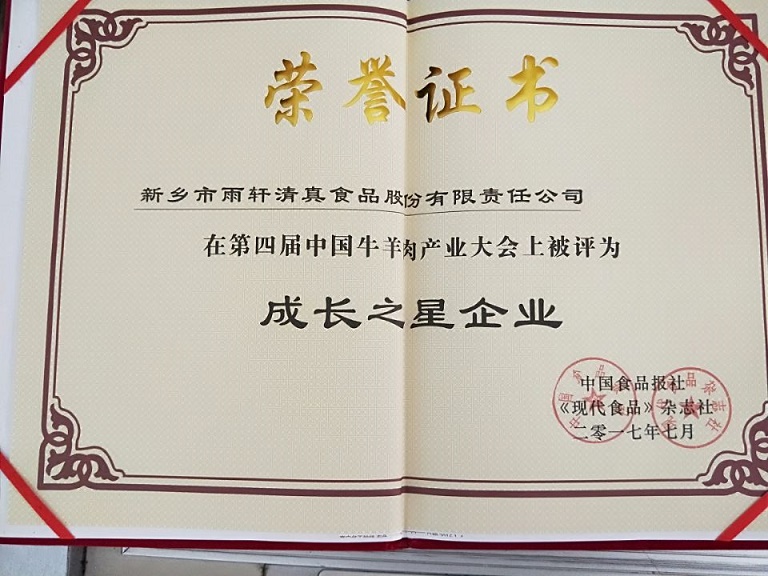 荣誉证书
新乡市雨轩清真食品股份有限责任公司
在第四届中国牛羊肉产业大会上被评为
成长之星企业
中国食品报社
《现代食品》杂志社
二零一七年七月